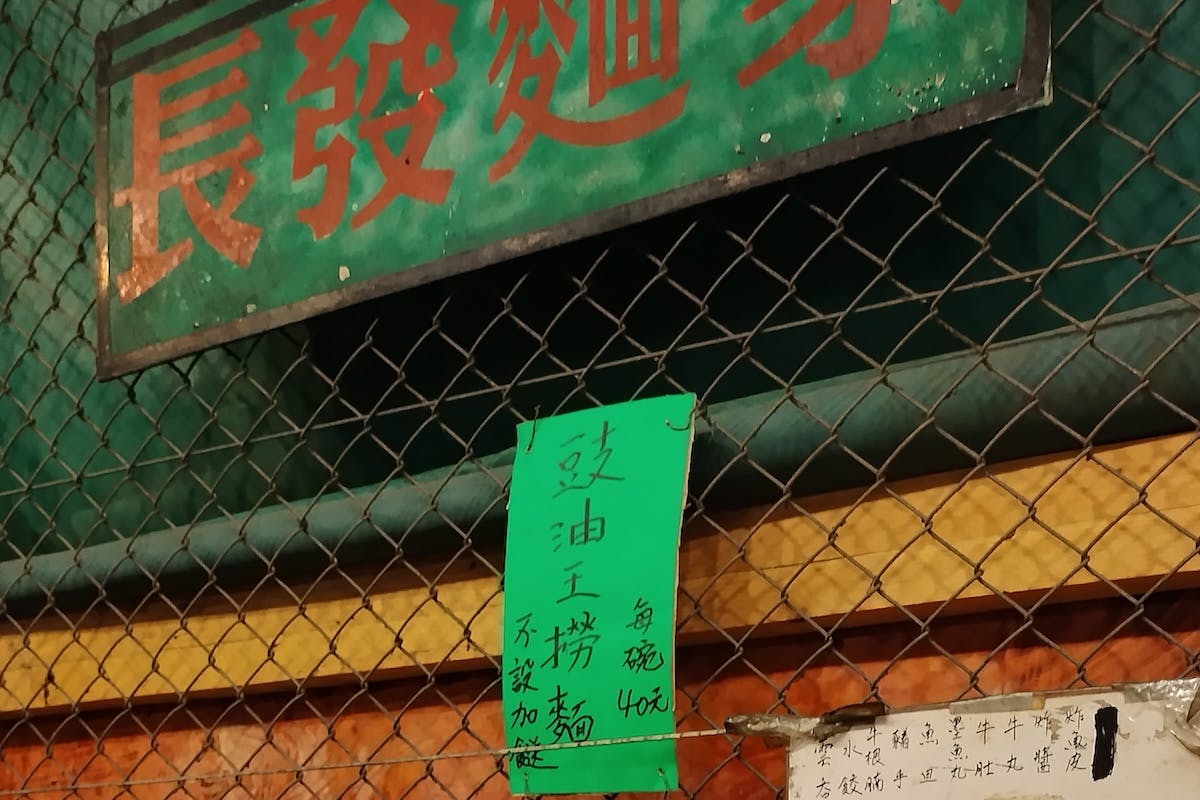 長發麵家
每碗40元
豉油王撈麵
不設加餸
炸魚皮
炸醬
牛丸
牛肚
墨魚丸
魚
豬手
牛根腩
水餃
雲吞